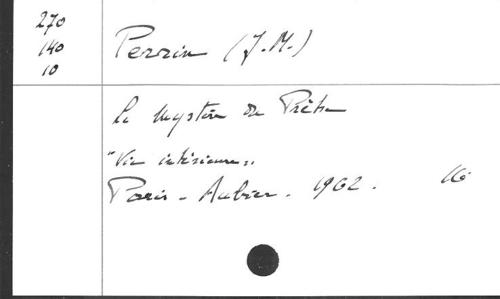 270
140
10
Perrin (J.M.)
Le Mystère du Prêtre
"Vie intérieure"
Paris - Aubier - 1962.